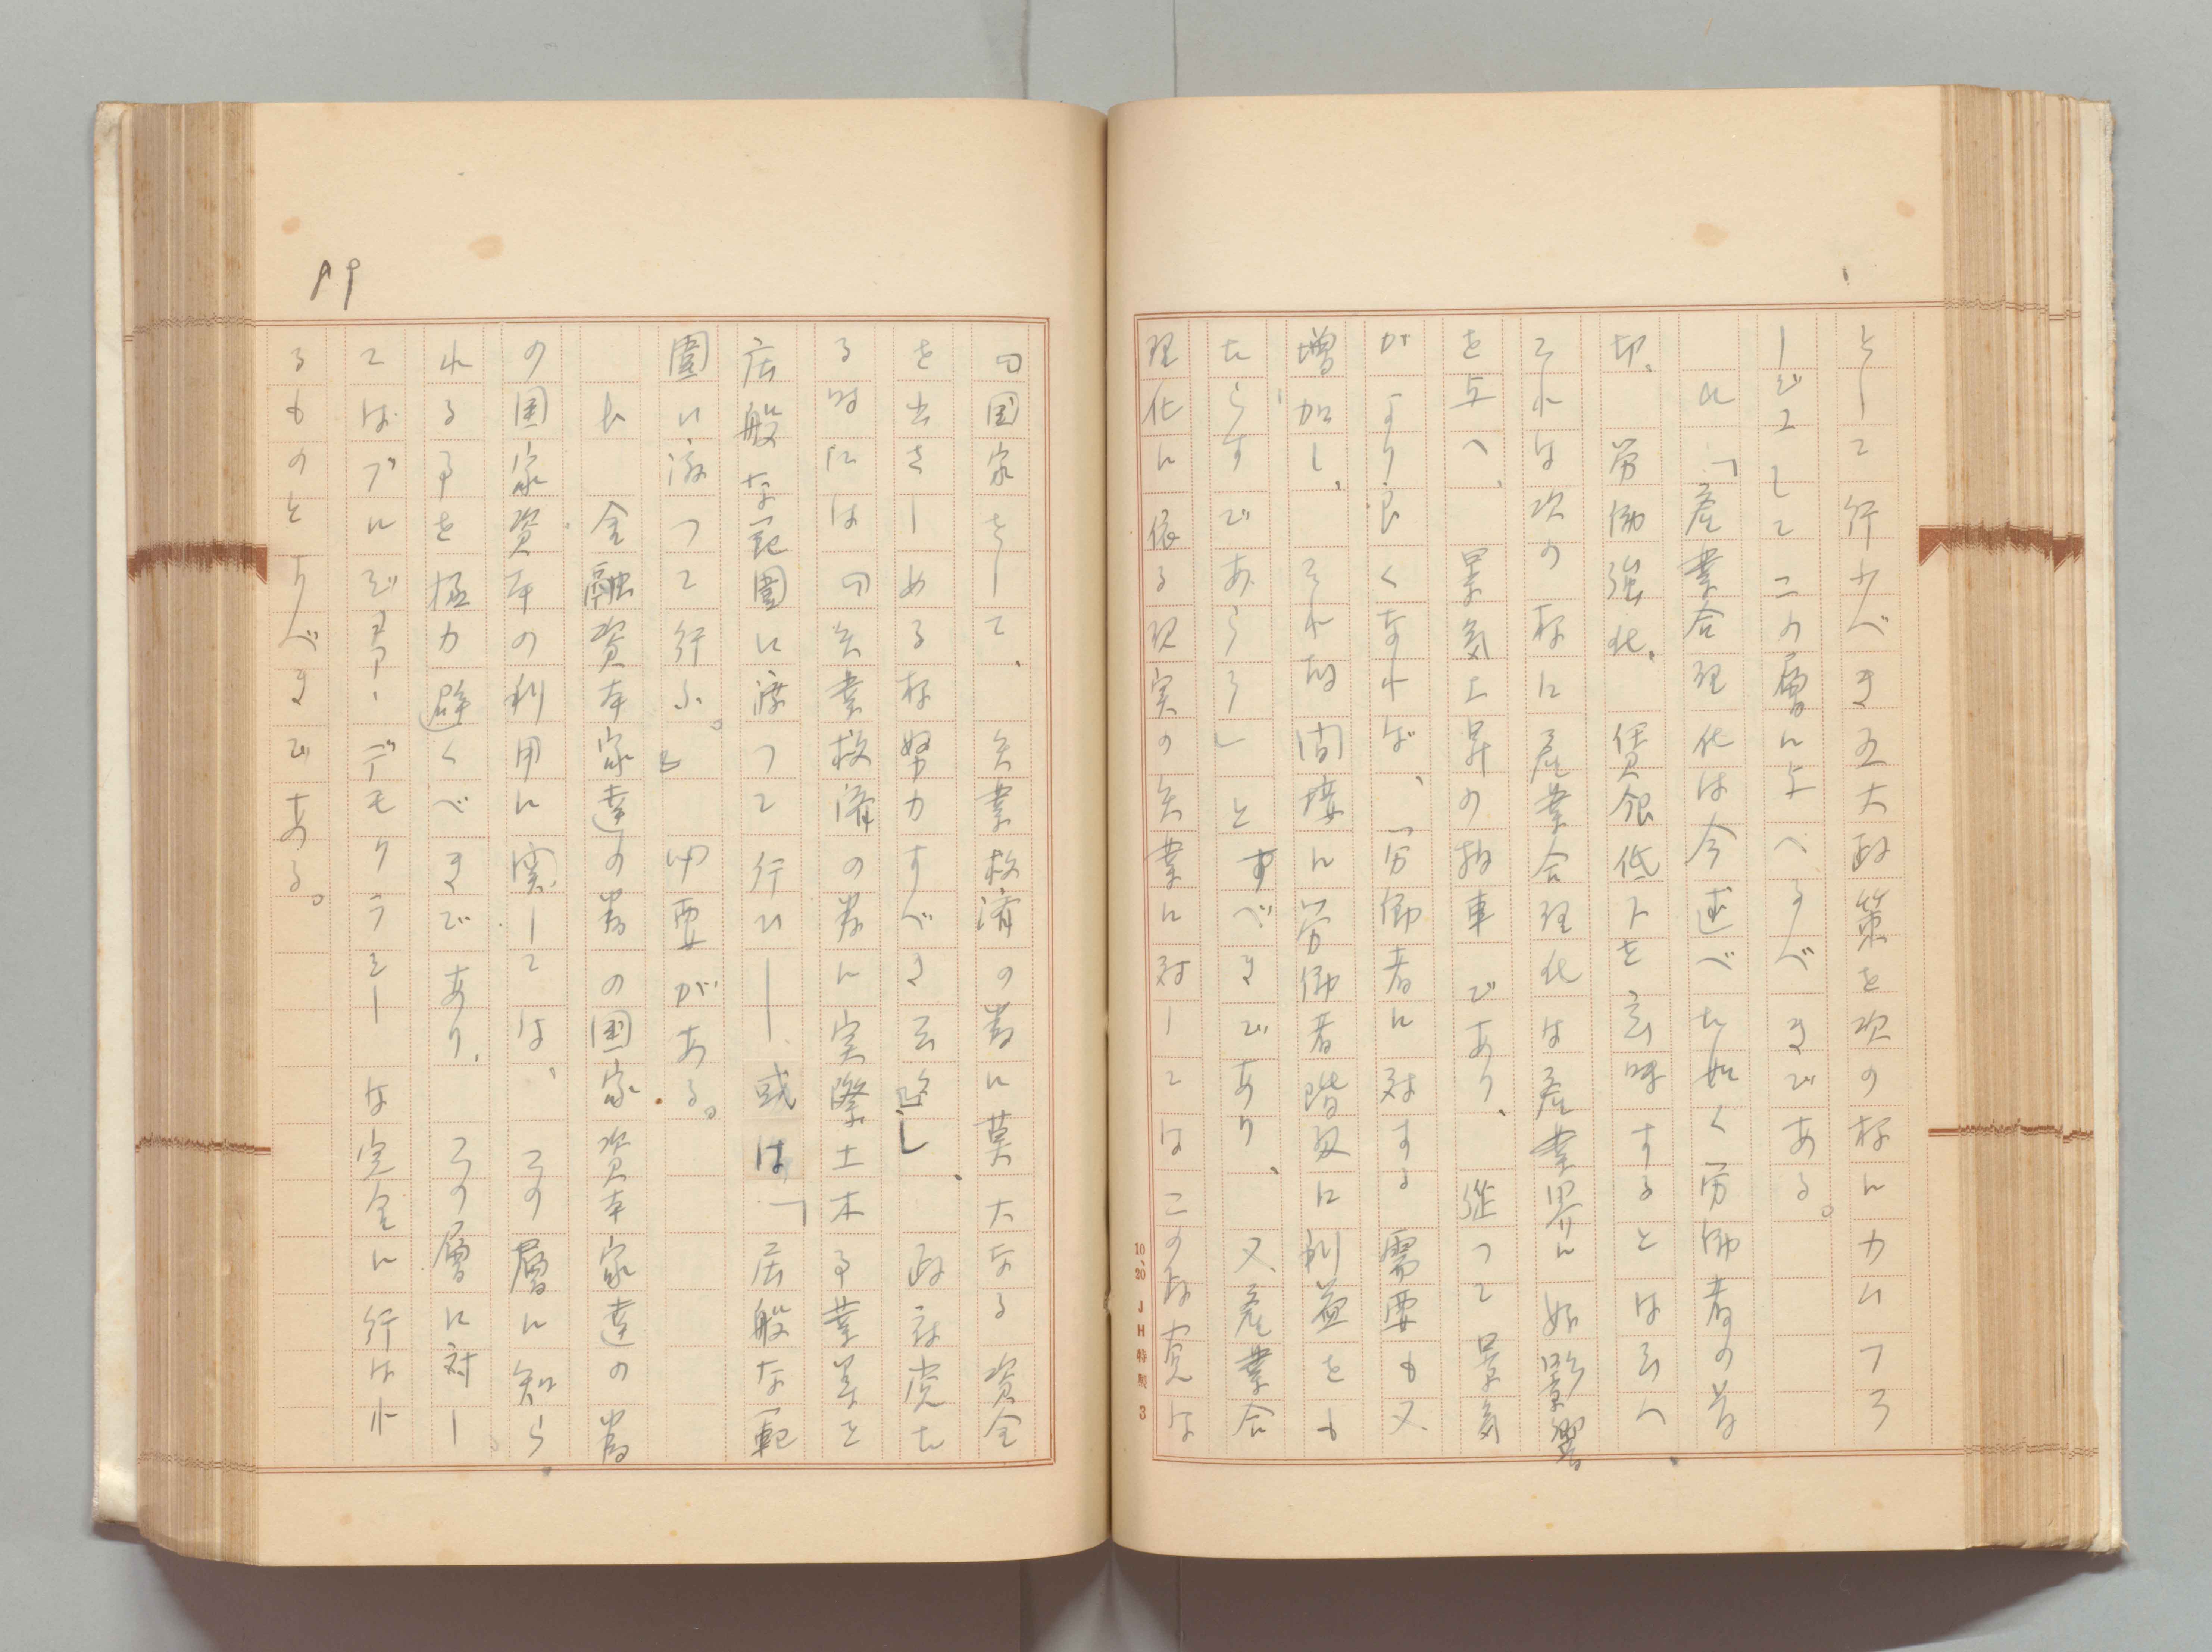 として行ふべき五大政策を次の様にカムフラ
ーヂュしてこの層に与へるべきである。
ﾊ「産業合理化は今述べた如く労働者の首
切、労働強化、賃銀低下を意味するとは云へ
それは次の様に産業合理化は産業界に好影響
を与へ、景気上昇の拍車であり、従つて景気
がより良くなれば、労働者に対する需要も又
増加し、それ故間接に労働者階級に利益をも
たらすであらう」とすべきであり、又産業合
理化に依る現実の失業に対してはこの様な
理
10、20 JH特製 3
19
国家をして、失業救済の為に莫大なる資金
を出さしめる様努力すべき云々し、政府をた
る時には 失業救済の為に実際土木事業等を
広般な範囲に渡つて行ひ――或は「広般な範
囲に渡つて行ふ。』必要がある。
金融資本家達の為の国家資本家達の為
の国家資本の利用に関しては、この層に知ら
れる事を極力避くべきであり、この層に対し
てはブルジョアー・デモクラシーは完全に行はれ
るものとすべきである。